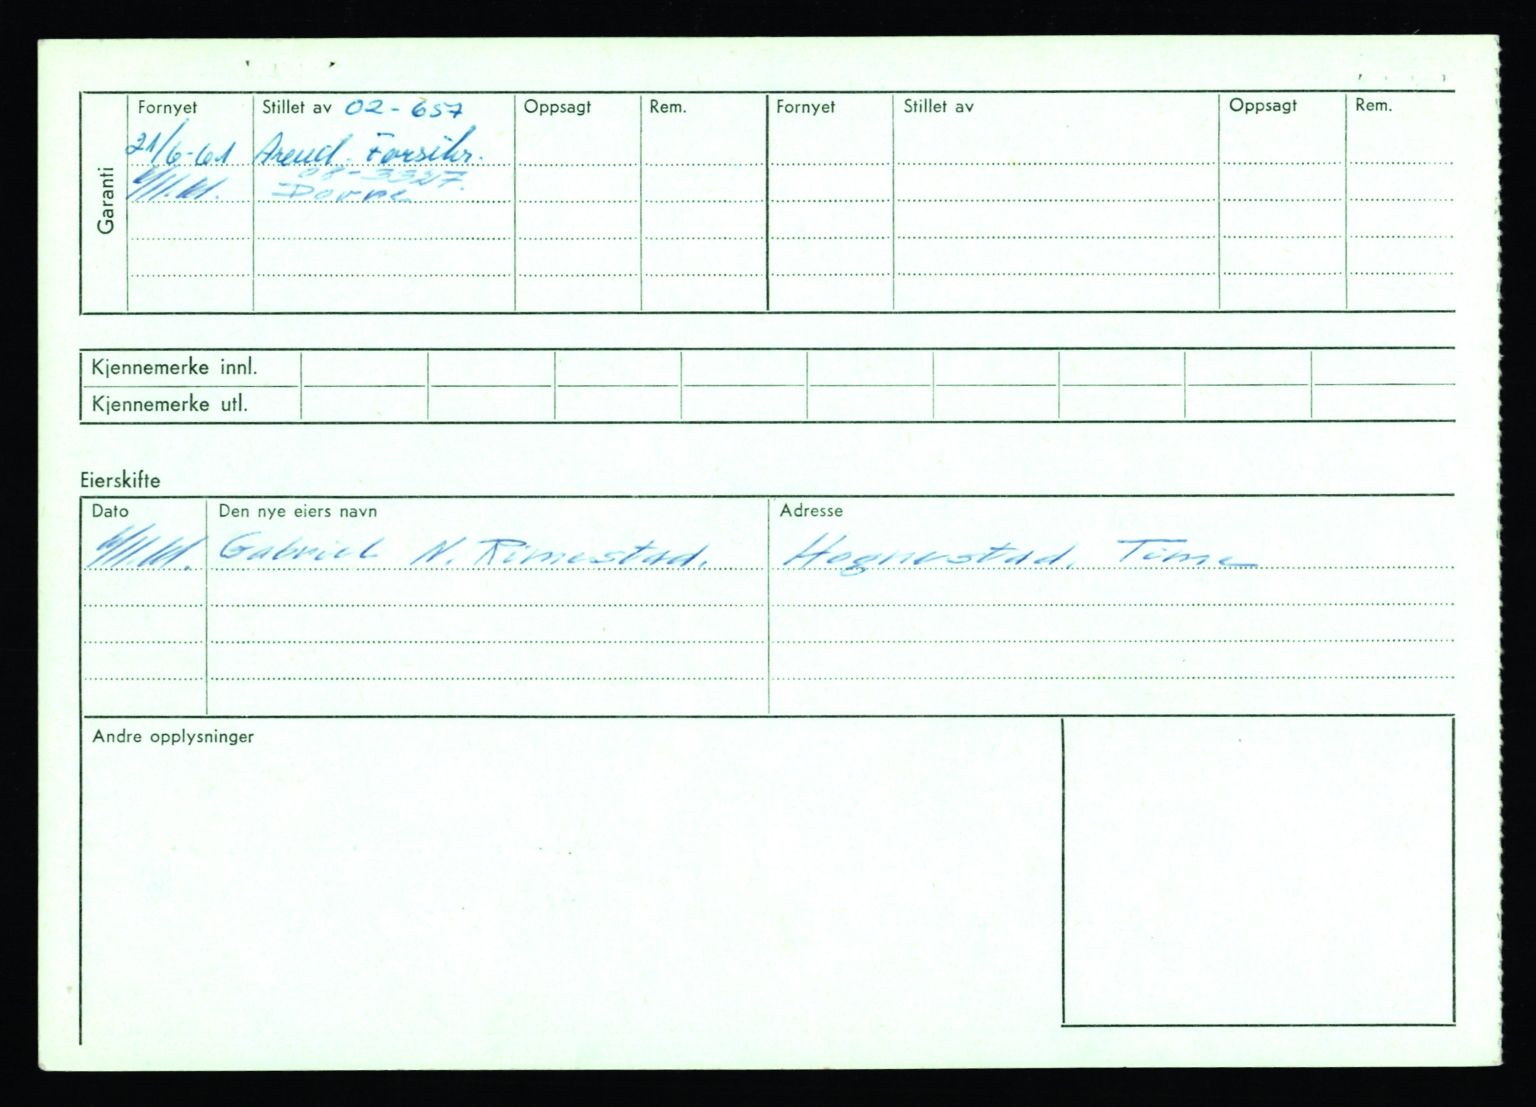 Fornyet Stillet av 02-657 Oppsagt Rem. Fornyet Stillet av Oppsagt Rem.
21/6-61 Arend. Forsikr.
08-3327.
Dovre
Garanti
Kjennemerke innl.
Kjennemerke utl.
Eierskifte
Dato Den nye eiers navn Adresse
Gabriel N. Rimestad. Hognestad, Time
Andre opplysninger